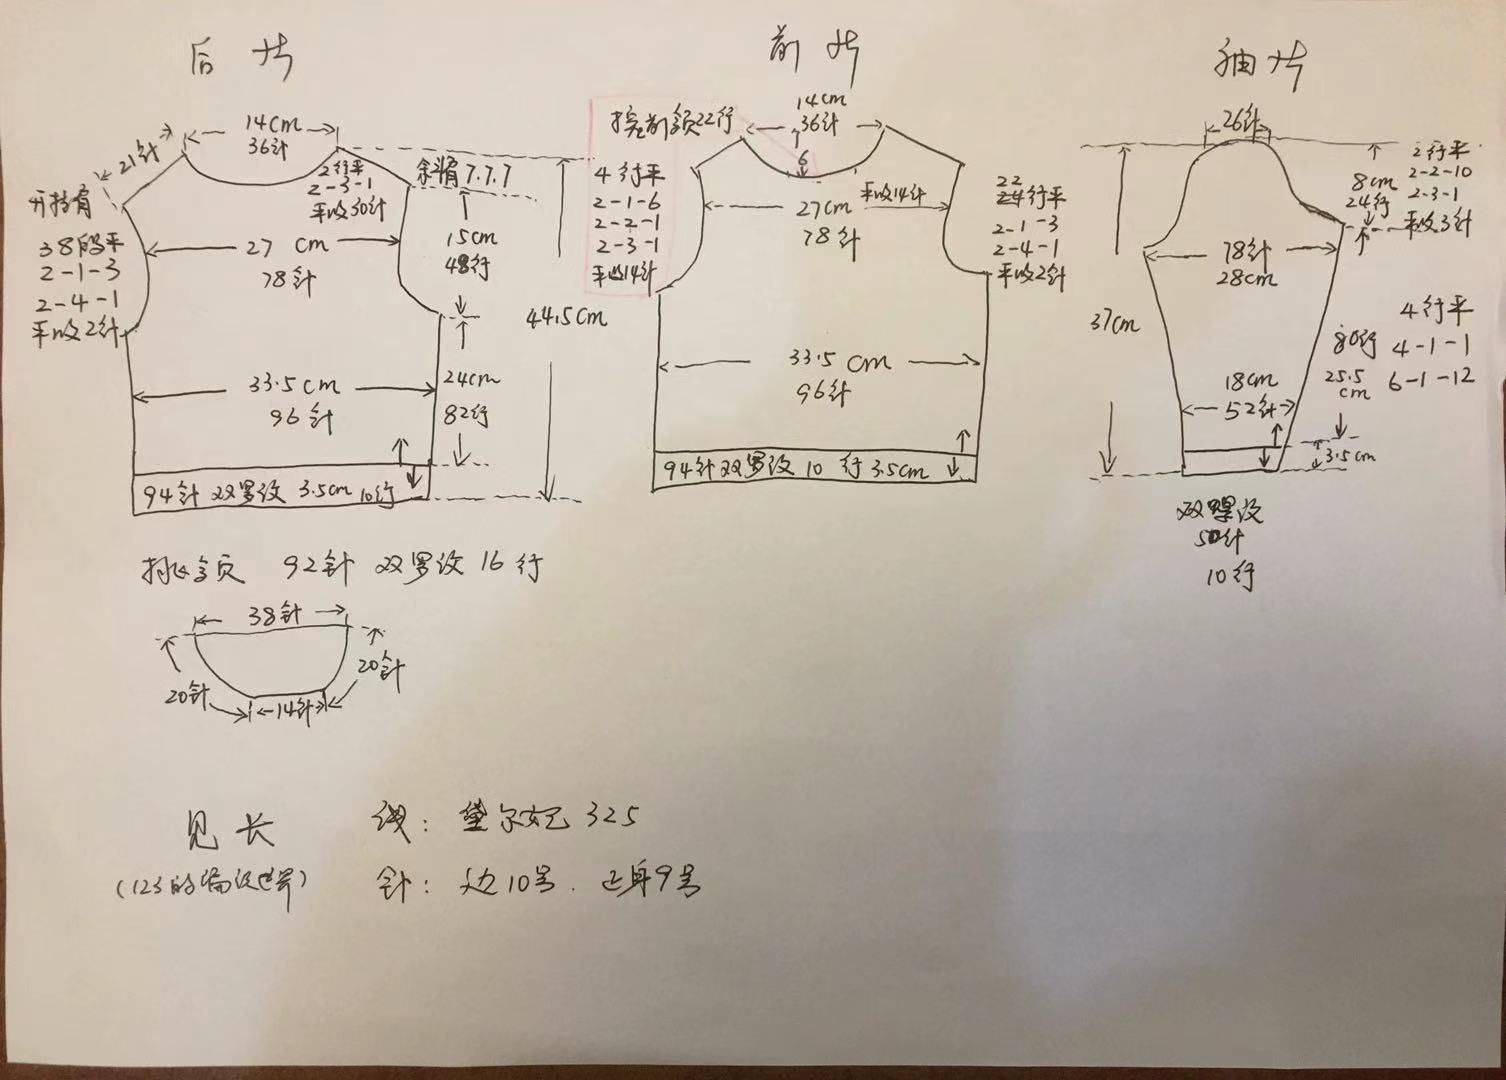 后片
14cm
36针
21针
2行平
2-3-1
平收30针
斜肩 7.7.7
开挂肩
38段平
2-1-3
2-4-1
平收2针
27 cm
78针
15cm
48行
44.5cm
33.5cm
96针
24cm
82行
94针 双罗纹 3.5cm 10行
前片
挖前领22行
14cm
36针
6
4行平
2-1-6
2-2-1
2-3-1
平收14针
平收14针
27cm
78针
22
24行平
2-1-3
2-4-1
平收2针
33.5 cm
96针
94针双罗纹 10 行 3.5cm
袖片
26针
8cm
24行
2行平
2-2-10
2-3-1
平收3针
78针
28cm
37cm
80行
25.5
cm
4行平
4-1-1
6-1-12
18cm
52针
3.5cm
双罗纹
50针
10行
挑领 92针 双罗纹 16行
38针
20针
20针
14针
见长
(123的编织世界)
线: 黛尔妃 325
针: 边10号. 正身9号